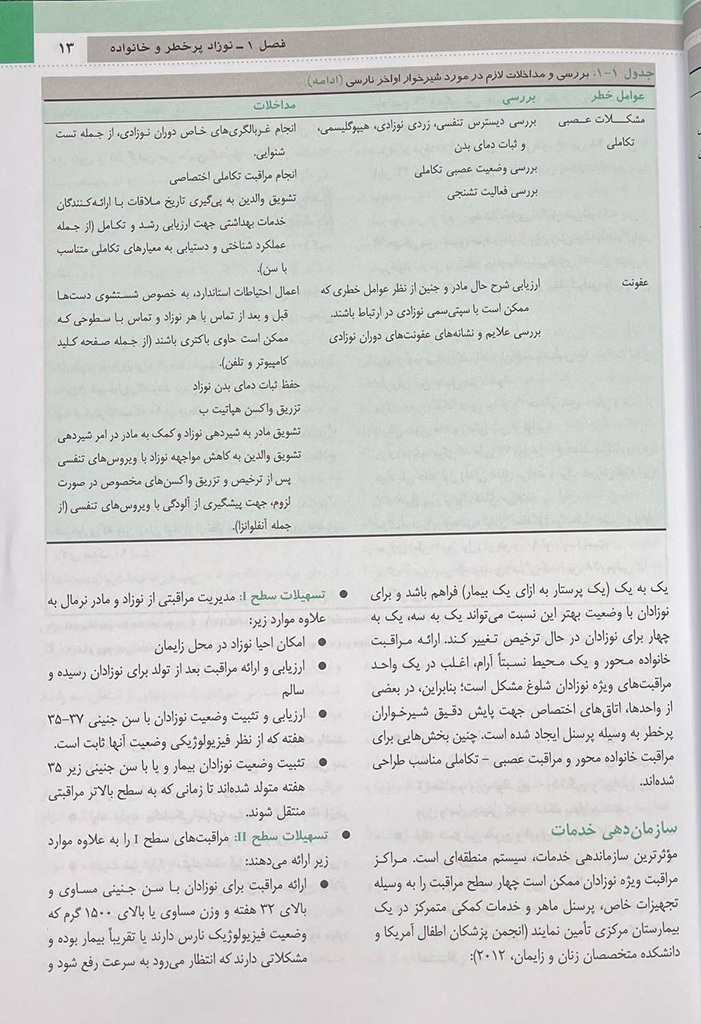 فصل ۱ ـ نوزاد پرخطر و خانواده ۱۳
جدول ۱-۱. بررسی و مداخلات لازم در مورد شیرخوار اواخر نارسی (ادامه)
عوامل خطر بررسی مداخلات
مشکلات عصبی
تکاملی
بررسی دیسترس تنفسی، زردی نوزادی، هیپوگلیسمی،
و ثبات دمای بدن
بررسی وضعیت عصبی تکاملی
بررسی فعالیت تشنجی
انجام غربالگری‌های خاص دوران نوزادی، از جمله تست
شنوایی.
انجام مراقبت تکاملی اختصاصی
تشویق والدین به پی‌گیری تاریخ ملاقات با ارائه‌کنندگان
خدمات بهداشتی جهت ارزیابی رشد و تکامل (از جمله
عملکرد شناختی و دستیابی به معیارهای تکاملی متناسب
با سن).
عفونت
ارزیابی شرح حال مادر و جنین از نظر عوامل خطری که
ممکن است با سپتی‌سمی نوزادی در ارتباط باشند.
بررسی علایم و نشانه‌های عفونت‌های دوران نوزادی
اعمال احتیاطات استاندارد، به خصوص شستشوی دست‌ها
قبل و بعد از تماس با هر نوزاد و تماس با سطوحی که
ممکن است حاوی باکتری باشند (از جمله صفحه کلید
کامپیوتر و تلفن).
حفظ ثبات دمای بدن نوزاد
تزریق واکسن هپاتیت ب
تشویق مادر به شیردهی نوزاد و کمک به مادر در امر شیردهی
تشویق والدین به کاهش مواجهه نوزاد با ویروس‌های تنفسی
پس از ترخیص و تزریق واکسن‌های مخصوص در صورت
لزوم، جهت پیشگیری از آلودگی با ویروس‌های تنفسی (از
جمله آنفلوانزا).
یک به یک (یک پرستار به ازای یک بیمار) فراهم باشد و برای
نوزادان با وضعیت بهتر این نسبت می‌تواند یک به سه، یک به
چهار برای نوزادان در حال ترخیص تغییر کند. ارائه مراقبت
خانواده محور و یک محیط نسبتاً آرام، اغلب در یک واحد
مراقبت‌های ویژه نوزادان شلوغ مشکل است؛ بنابراین، در بعضی
از واحدها، اتاق‌های اختصاص جهت پایش دقیق شیرخواران
پرخطر به وسیله پرسنل ایجاد شده است. چنین بخش‌هایی برای
مراقبت خانواده محور و مراقبت عصبی – تکاملی مناسب طراحی
شده‌اند.
سازمان‌دهی خدمات
مؤثرترین سازماندهی خدمات، سیستم منطقه‌ای است. مراکز
مراقبت ویژه نوزادان ممکن است چهار سطح مراقبت را به وسیله
تجهیزات خاص، پرسنل ماهر و خدمات کمکی متمرکز در یک
بیمارستان مرکزی تأمین نمایند (انجمن پزشکان اطفال آمریکا و
دانشکده متخصصان زنان و زایمان، ۲۰۱۲):
● تسهیلات سطح I: مدیریت مراقبتی از نوزاد و مادر نرمال به
علاوه موارد زیر:
● امکان احیا نوزاد در محل زایمان
● ارزیابی و ارائه مراقبت بعد از تولد برای نوزادان رسیده و
سالم
● ارزیابی و تثبیت وضعیت نوزادان با سن جنینی ۳۷-۳۵
هفته که از نظر فیزیولوژیکی وضعیت آنها ثابت است.
● تثبیت وضعیت نوزادان بیمار و یا با سن جنینی زیر ۳۵
هفته متولد شده‌اند تا زمانی که به سطح بالاتر مراقبتی
منتقل شوند.
● تسهیلات سطح II: مراقبت‌های سطح I را به علاوه موارد
زیر ارائه می‌دهند:
● ارائه مراقبت برای نوزادان با سن جنینی مساوی و
بالای ۳۲ هفته و وزن مساوی یا بالای ۱۵۰۰ گرم که
وضعیت فیزیولوژیک نارس دارند یا تقریباً بیمار بوده و
مشکلاتی دارند که انتظار می‌رود به سرعت رفع شود و